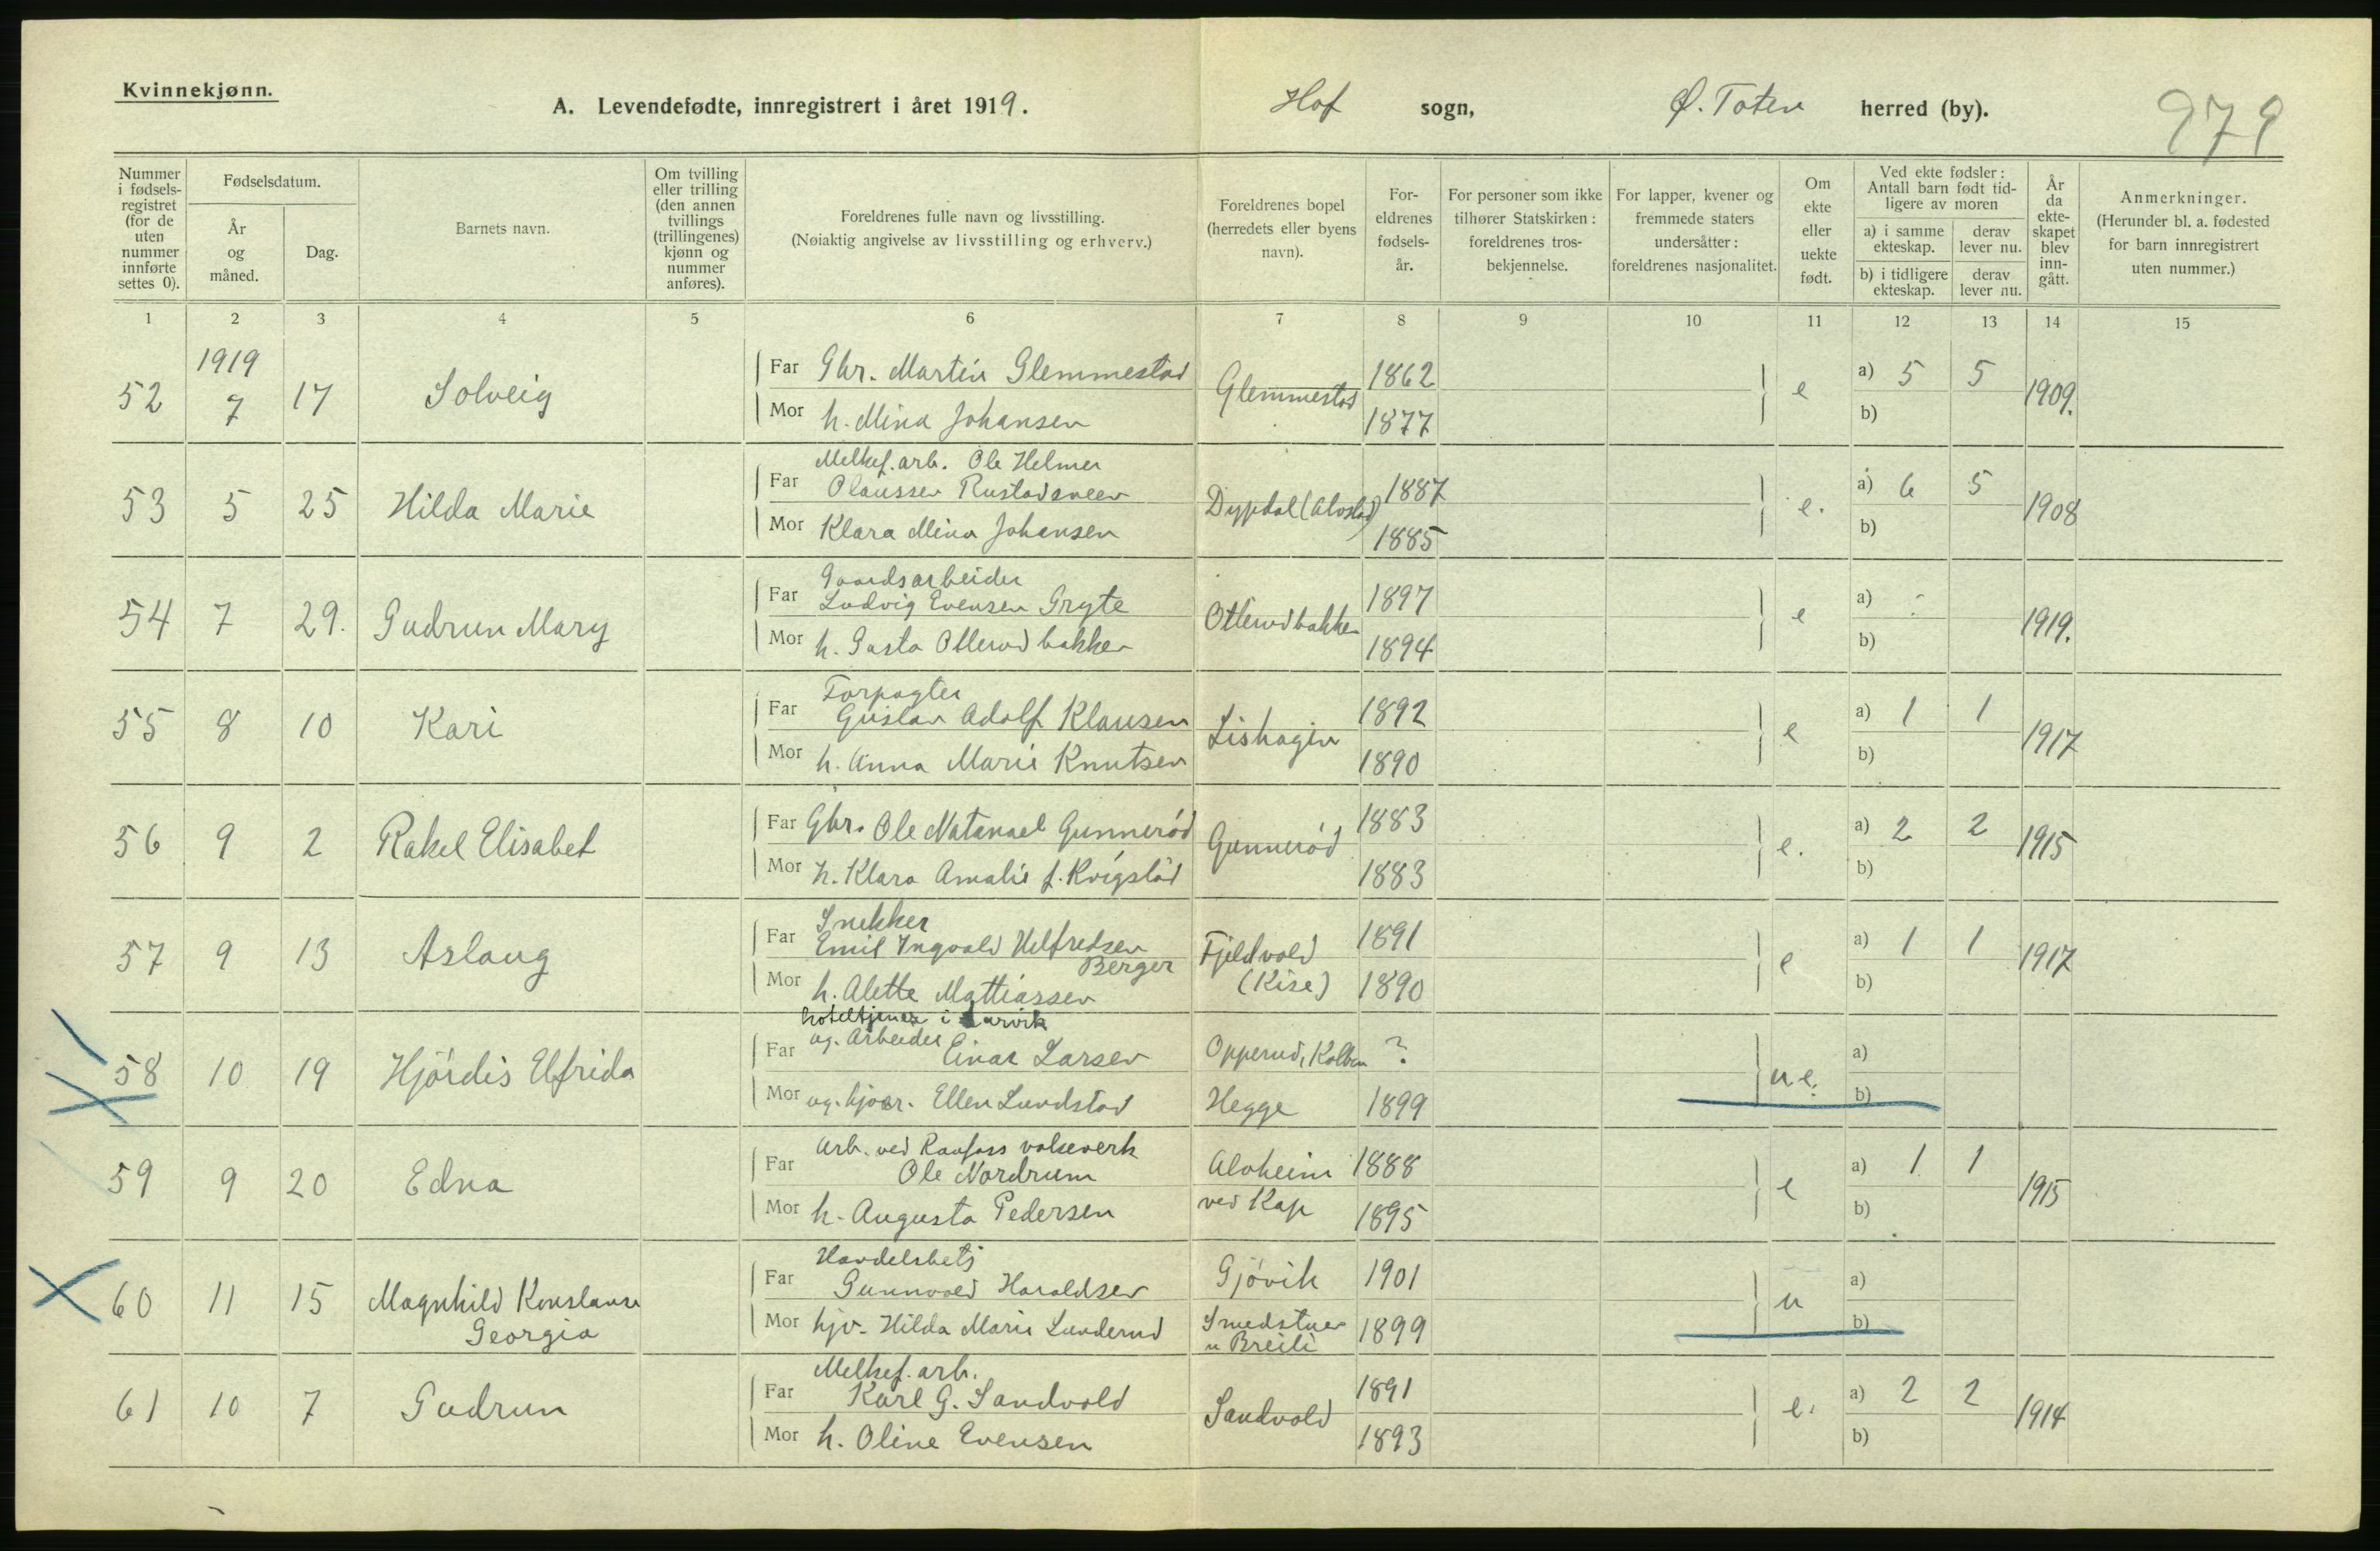 Kvinnekjønn.
A. Levendefødte, innregistrert i året 1919. Hof sogn, Ø. Toten herred (by). 979
Nummer i fødselsregistret (for de uten nummer innførte settes 0).
Fødselsdatum.
År og måned.
Dag.
Barnets navn.
Om tvilling eller trilling (den annen tvillings (trillingenes) kjønn og nummer anføres).
Foreldrenes fulle navn og livsstilling.
(Nøiaktig angivelse av livsstilling og erhverv.)
Foreldrenes bopel (herredets eller byens navn).
Foreldrenes fødselsår.
For personer som ikke tilhører Statskirken: foreldrenes trosbekjennelse.
For lapper, kvener og fremmede staters undersåtter: foreldrenes nasjonalitet.
Om ekte eller uekte født.
Ved ekte fødsler: Antall barn født tidligere av moren
a) i samme ekteskap. derav lever nu.
b) i tidligere ekteskap. derav lever nu.
År da ekteskapet blev inngått.
Anmerkninger.
(Herunder bl. a. fødested for barn innregistrert uten nummer.)
1 2 3 4 5 6 7 8 9 10 11 12 13 14 15
1919
52 7 17 Solveig Far Gbr. Martin Glemmestad Glemmestad 1862 e a) 5 5 1909.
Mor h. Mina Johansen 1877 b)
Melkef. arb. Ole Helmer
53 5 25 Hilda Marie Far Olaussen Rustadsveen 1887 e. a) 6 5 1908
Mor Klara Mina Johansen Dypdal 1885 b)
Gaardsarbeider
54 7 29. Gudrun Mary Far Ludvig Evensen Gryte Otterudbakken 1897 e a) 1919.
Mor h. Otterudbakken 1894 b)
Forpagter
55 8 10 Kari Far Gustav Adolf Klausen Lishagen 1892 e a) 1 1 1917
Mor h. Anna Marie Knutsen 1890 b)
56 9 2 Rakel Elisabet Far Gbr. Ole Natanael Gunnerød Gunnerød 1883 e. a) 2 2 1915
Mor h. Klara Amalie f. Kvigstad 1883 b)
Snekker
57 9 13 Aslaug Far Emil Ingvald Helfredsen Berger Fjeldvold 1891 e a) 1 1 1917
Mor h. Alette Mattiassen (Kise) 1890 b)
hoteltjener i Larvik
58 10 19 Hjördis Elfrida Far ug. Arbeider Einar Larsen Opperud, Kolbu ? u e. a)
Mor ug. Ellen Lundstad Hegge 1899 b)
Arb. ved Raufoss valseverk
59 9 20 Edna Far Ole Nordrum Alvheim 1888 e a) 1 1 1915
Mor h. Augusta Pedersen ved Kap 1895 b)
Handelsbetj
60 11 15 Magnhild Konstanse Far Gunnvald Haraldsen Gjövik 1901 u a)
Georgia Mor hjv. Hilda Marie Lunderud Smedstuen u Breili 1899 b)
Melkef. arb.
61 10 7 Gudrun Far Karl G. Sandvold Sandvold 1891 e. a) 2 2 1914
Mor h. Oline Evensen 1893 b)